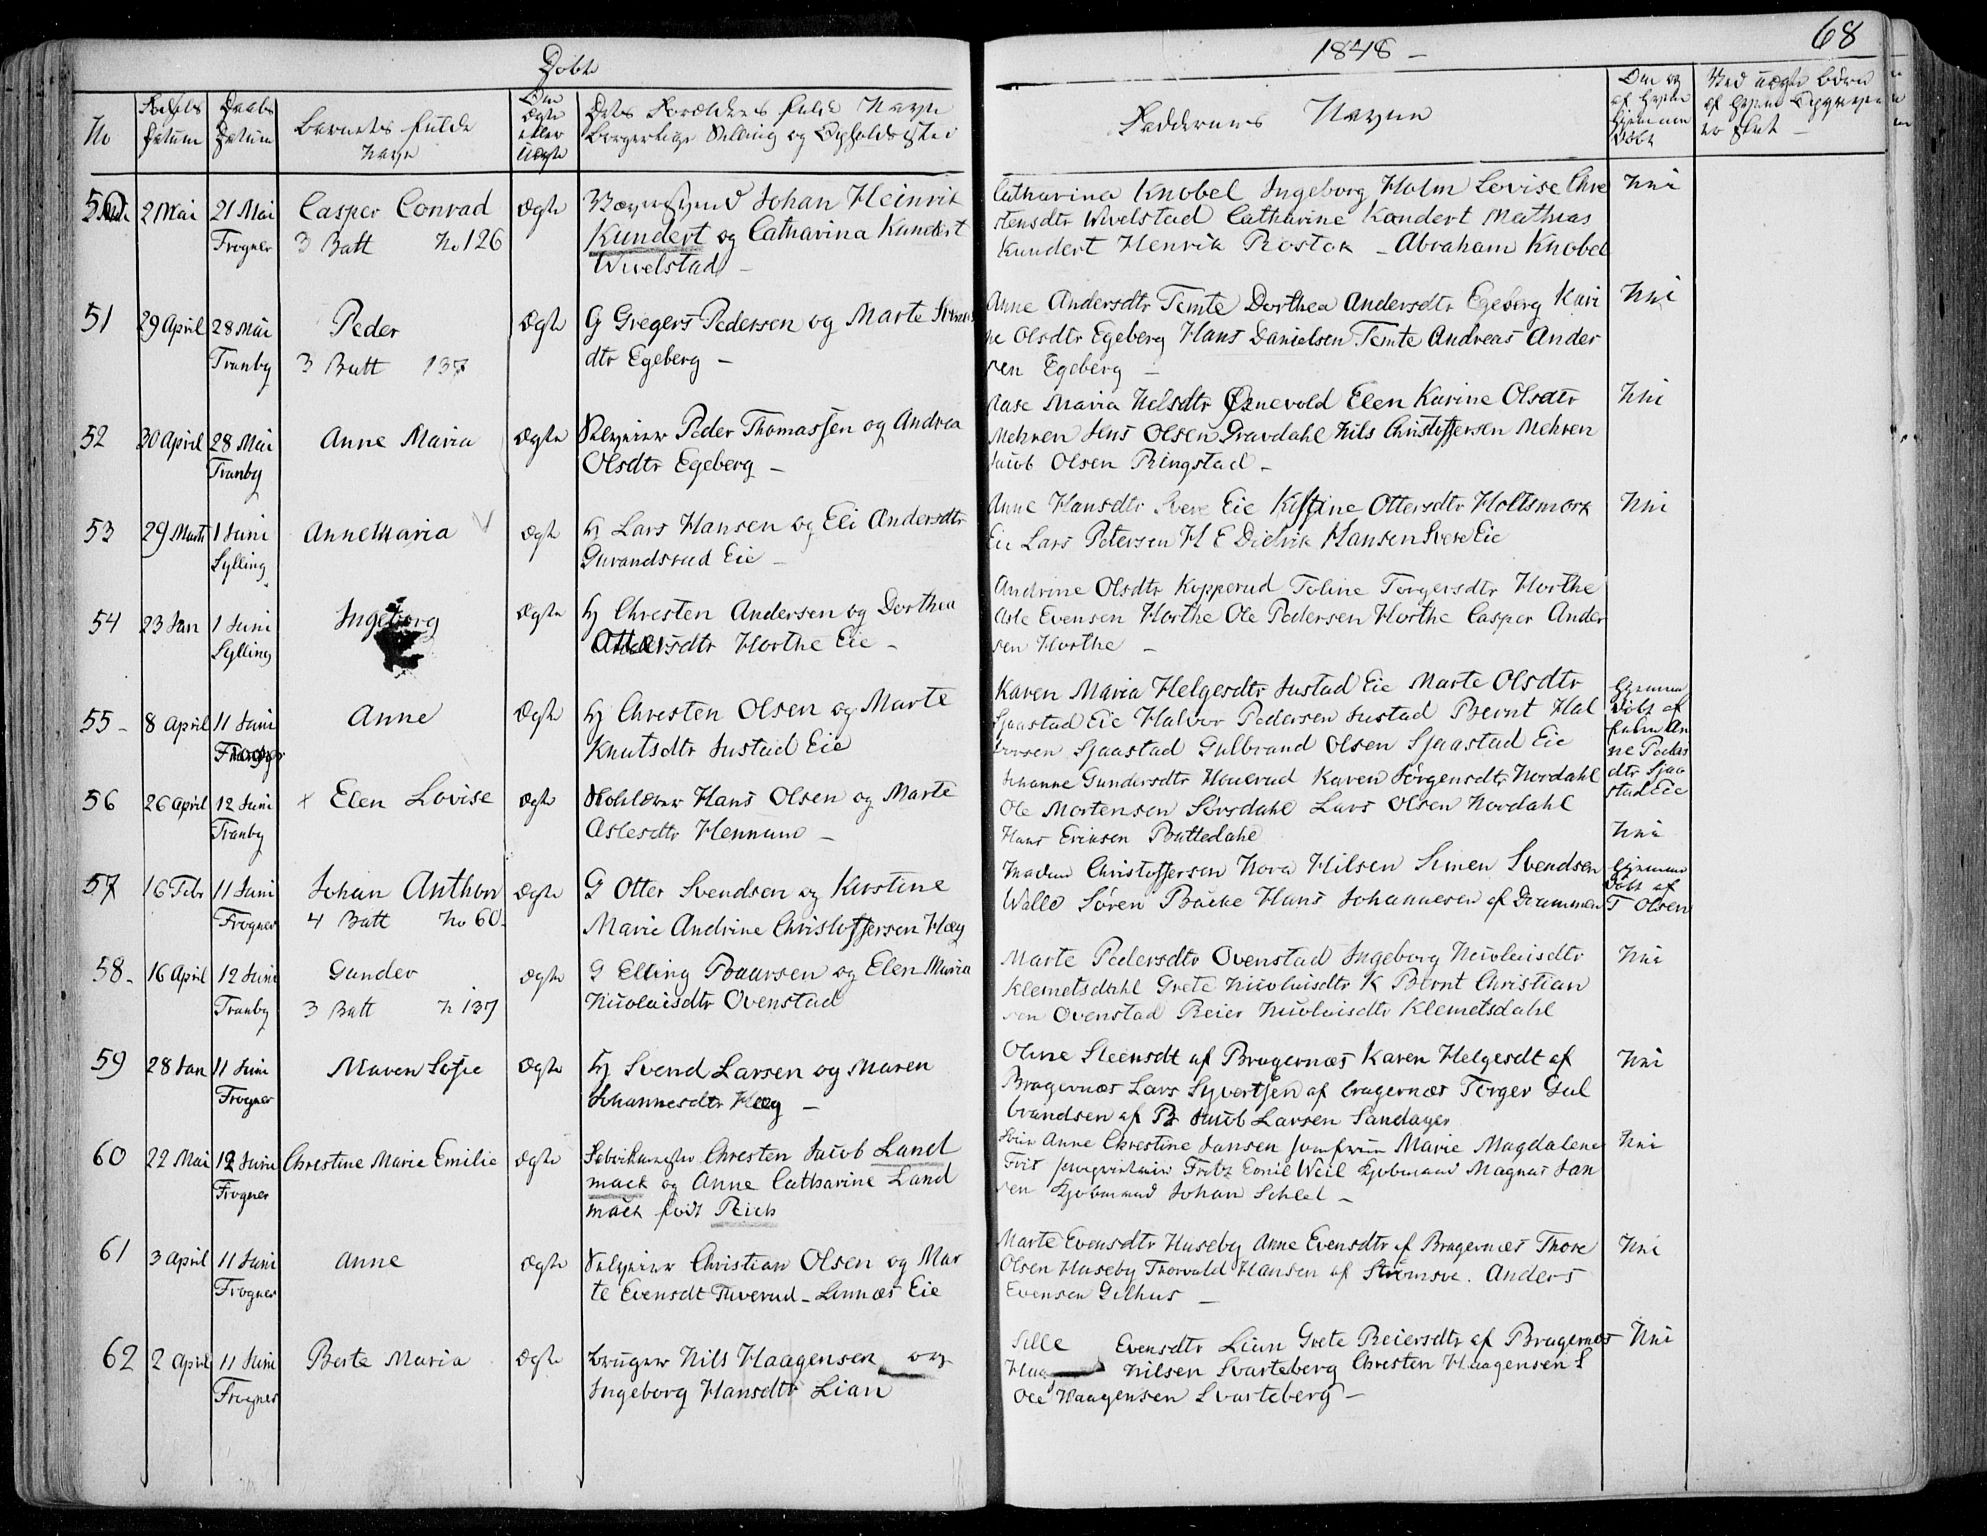 Døbte
1848 –
68
No
Fødsels Datum
Daabs Datum
Barnets fulde Navn
Om Ægte eller Uægte
Dets Forældres fulde Navn
borgerlige Stilling og Opholdssted
Faddernes Navne
Om og af hvem hjemmedøbt
50 2 Mai 21 Mai Casper Conrad Ægte Johan Heinrik
Frogner 3 Batt No 126 Kundert og Catharina Kundert
Wivelstad –
Catharina Knobel Ingeborg Holm Lovise Chre
stensdtr Wivelstad Catharine Kundert Mathias
Kundert Henrik Rostok – Abraham Knobel
Nei
51 29 April 28 Mai Peder Ægte G Gregers Pedersen og Marte
Tranby 3 Batt 137 dtr Egeberg –
Anne Andersdtr Temte Dorthea Andersdtr Egeberg Kari
ne Olsdtr Egeberg Hans Danielsen Temte Andreas Ander
sen Egeberg –
Nei
52 30 April 28 Mai Anne Maria Ægte Selveier Peder Thomassen og Andrea
Tranby Olsdtr Egeberg –
Aase Maria Nelsdtr Øznevold Elen Karine Olsdtr
Mehren Jens Olsen Gravdahl Nils Christoffersen Mehren
Jacob Olsen Ringstad –
Nei
53 29 Marts 1 Juni Anne Maria Ægte Hj Lars Hansen og Eli Andersdtr
Sylling Eie –
Anne Hansdtr Svere Eie Kistine Ottersdtr Holtsmark
Eie Lars Petersen H E Didrik Hansen Svere Eie
Nei
54 23 Jan 1 Juni Ingeborg Ægte Hj Chresten Andersen og Dorthea
Sylling Horthe Eie –
Andrine Olsdtr Kopperud Toline Torgersdtr Horthe
Asle Evensen Horthe Ole Pedersen Horthe Casper Ander
sen Horthe –
55 – 8 April 11 Juni Anne Ægte Hj Chresten Olsen og Marte
Frogner Knutsdtr Justad Eie
Karen Maria Helgesdtr Justad Eie Marte Olsdtr
Sjaastad Eie Halvor Pedersen Justad Bernt Hal
vorsen Sjaastad Gulbrand Olsen Sjaastad Eie
Hjemme
døbt af
An
ne Peders
dtr Sjaa
stad Eie
56 26 April 12 Juni Elen Lovise Ægte Skolelærer Hans Olsen og Marte
Tranby Aslesdtr Hennum –
Johanne Gundersdtr Haverud Karen Jørgensdtr Nordahl
Ole Mortensen Sørsdahl Lars Olsen Nordahl
Hans Eriksen Buttedahl
Nei
57 16 Febr 11 Juni Johan Anthon Ægte G Otter Svendsen og Kirstine
Frogner 4 Batt No 60 Marie Andrine Christoffersen Hæg
Madam Christoffersen Nora Nilsen Simen Svendsen
Walle Søren Backe Hans Johannesen af Drammen
Hjemme
døbt af
T Olsen
58 – 16 April 12 Juni Gunder Ægte G Elling Paaursen og Elen Maria
Tranby 3 Batt N 137 Nicolaisdtr Ovenstad
Marte Pedersdtr Ovenstad Ingeborg Nicolaisdtr
Klemetsdahl Grete Nicolaisdtr K Bernt Christian
sen Ovenstad Reier Nicolaisdtr Klemetsdahl
Nei
59 28 Jan 11 Juni Maren Sofie Ægte Hj Svend Larsen og Maren
Frogner Johannesdtr Hæg –
Oline Steensdt af Bragernæs Karen Helgesdt af
Bragernæs Lars Syvertsen af Bragernæs Torger Gul
brandsen af B Jacob Larsen Sandager
Nei
60 22 Mai 12 Juni Christine Marie Emilie Ægte Chresten Jacob Land
Frogner mack og Anne Catharine Land
mack født Reich
Anne Chrestine Jansen Jomfrue Marie Magdalene
Fris Fritz Emil Weil Kjøbmand Magnus Jan
sen Kjøbmand Johan Schlel –
Nei
61 3 April 11 Juni Anne Ægte Selveier Christian Olsen og Mar
Frogner te Evensdt Tuverud – Linnæs Eie
Marte Evensdtr Huseby Anne Evensdtr af Bragernæs Thore
Olsen Huseby Thorvald Hansen af Strømsøe. Anders
Evensen Gilhus –
Nei
62 2 April 11 Juni Berte Maria Ægte bruger Nils Haagensen og
Frogner Ingeborg Hansdtr Lian
Sille Evensdtr Lian Grete Reiersdtr af Bragernæs
Nilsen Svarteberg Chresten Haagensen S
Ole Haagensen Svarteberg –
Nei